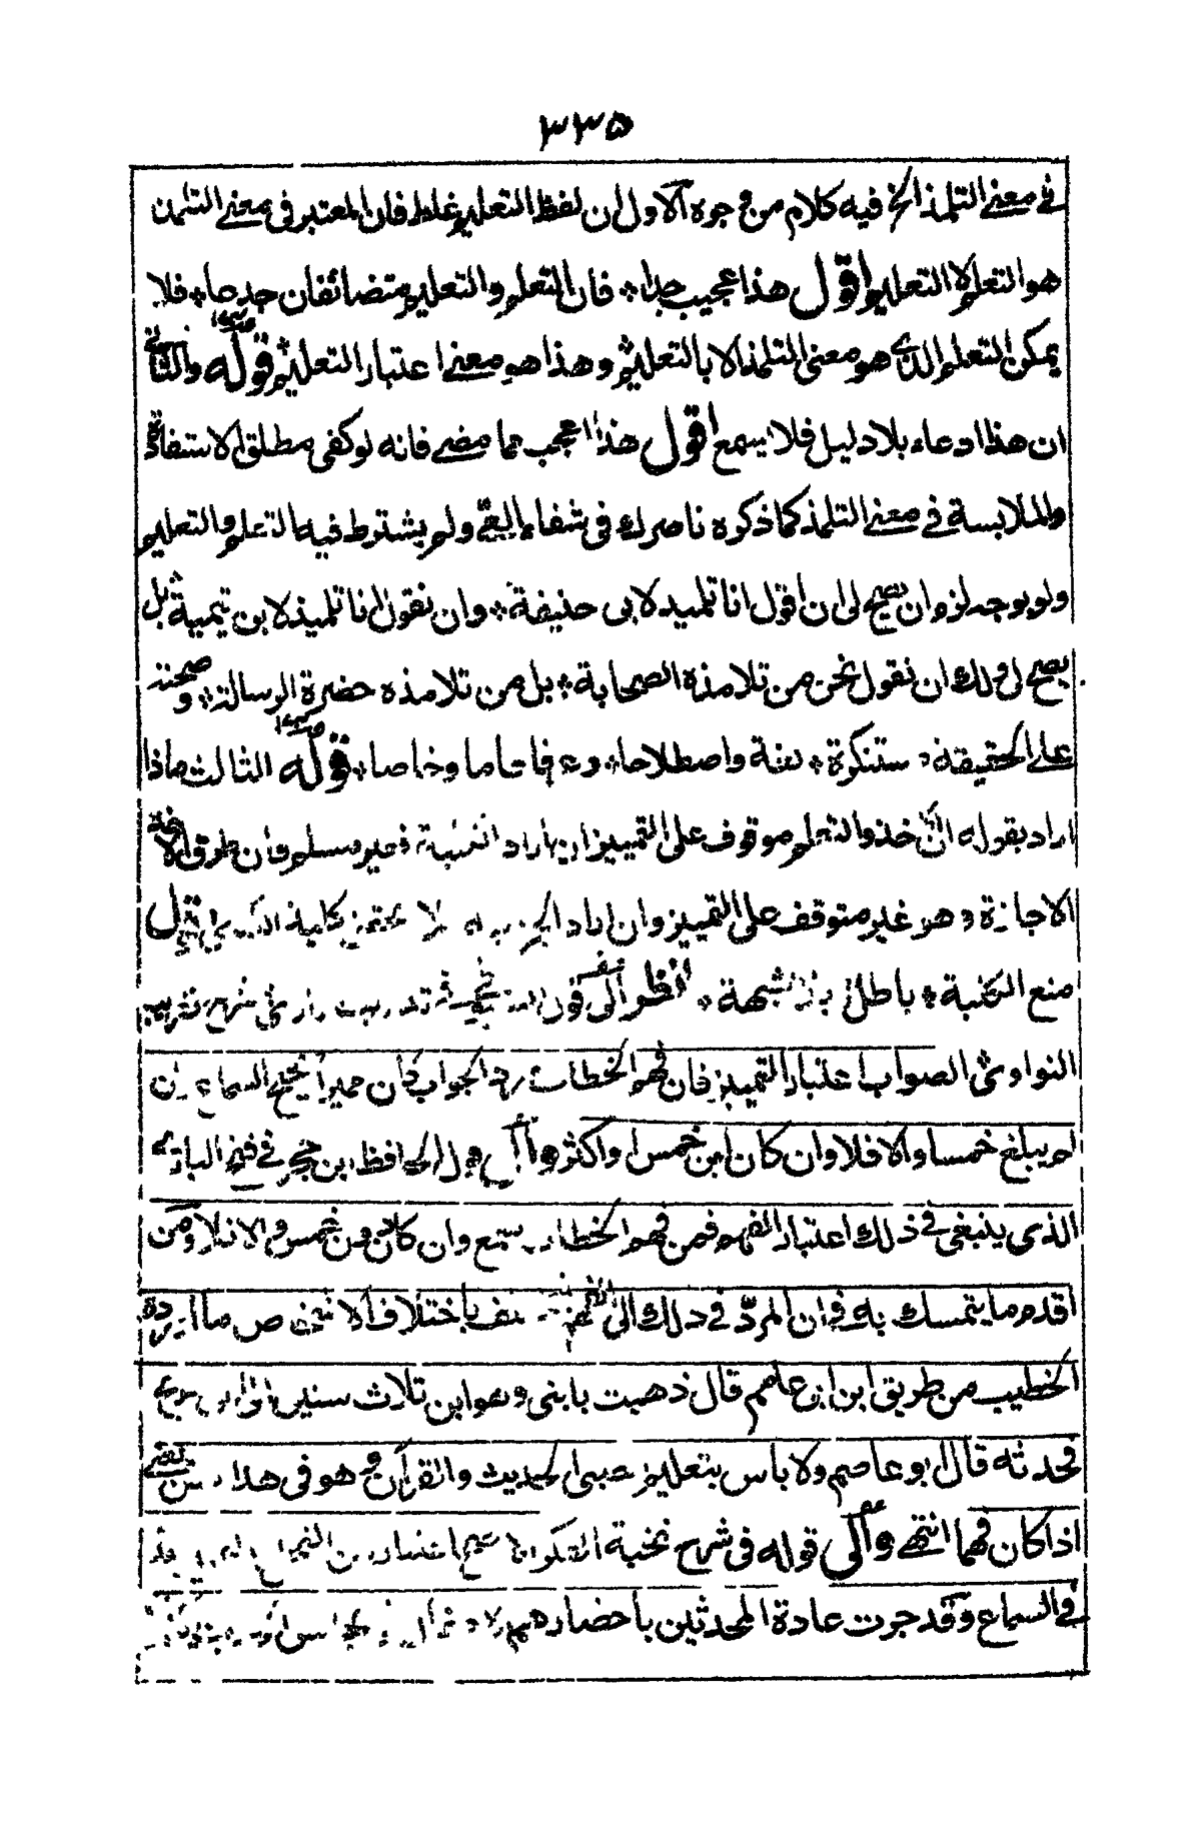 ٣٣٥
في معنى التلمذ الخ فيه كلام من وجوه الاول ان لفظ التعليم غلط فان المعتبر في معنى التلمذ
هو التعلم لا التعليم اقول هذا عجيب جدا * فان التعلم والتعليم متضائفان جدها * فلا
يمكن التعلم الذي هو معنى التلمذ الا بالتعليم * وهذا هو معنى اعتبار التعليم * قوله والثاني
ان هذا ادعاء بلا دليل فلا يسمع اقول هذا اعجب مما مضى فانه لو كفى مطلق الاستفادة
والملابسة في معنى التلمذ كما ذكره ناصرك في شفاء العي ولم يشترط فيه التعلم والتعليم
ولو بوجه لزم ان يصح لي ان اقول انا تلميذ لابي حنيفة * وان نقول انا تلميذ لابن تيمية * بل
يصح لي ولك ان نقول نحن من تلامذه الصحابة * بل من تلامذه حضرة الرسالة * وصحته
على الحقيقة مستنكرة * لغة واصطلاحا * وعرفا عاما وخاصا * قوله الثالث ماذا
اراد بقوله ان الاخذ والتعلم موقوف على التمييز ان اراد الكلية فغير مسلم فان طرق الاخذ
الاجازة وهو غير متوقف على التمييز وان اراد الجزئية لا يحتمل كلية الكبرى اقول
منع الكلية * باطل بلا شبهة * انظر الى قول
النواوي الصواب اعتبار التمييز فان فهم الخطاب ورد الجواب كان مميزا صحيح السماع وان
لم يبلغ خمسا والا فلا وان كان ابن خمس او اكثر والى قول الحافظ ابن حجر في فتح الباري
الذي ينبغي في ذلك اعتبار الفهم فمن فهم الخطاب سمع وان كان دون خمس والا فلا ومن
اقدم ما يتمسك به في ان المرد في ذلك الى الفهم فيختلف باختلاف الاشخاص ما اورده
الخطيب من طريق ابن ابي عاصم قال ذهبت بابني وهو ابن ثلاث سنين الى ابن جريج
فحدثه قال ابو عاصم ولا باس بتعليم الصبي الحديث والقرآن وهو في هذا السن يعني
اذا كان فهما انتهى والى قوله في شرح نخبة الفكر الاصح اعتبار سن التحمل بالتمييز هذا
في السماع وقد جرت عادة المحدثين باحضارهم